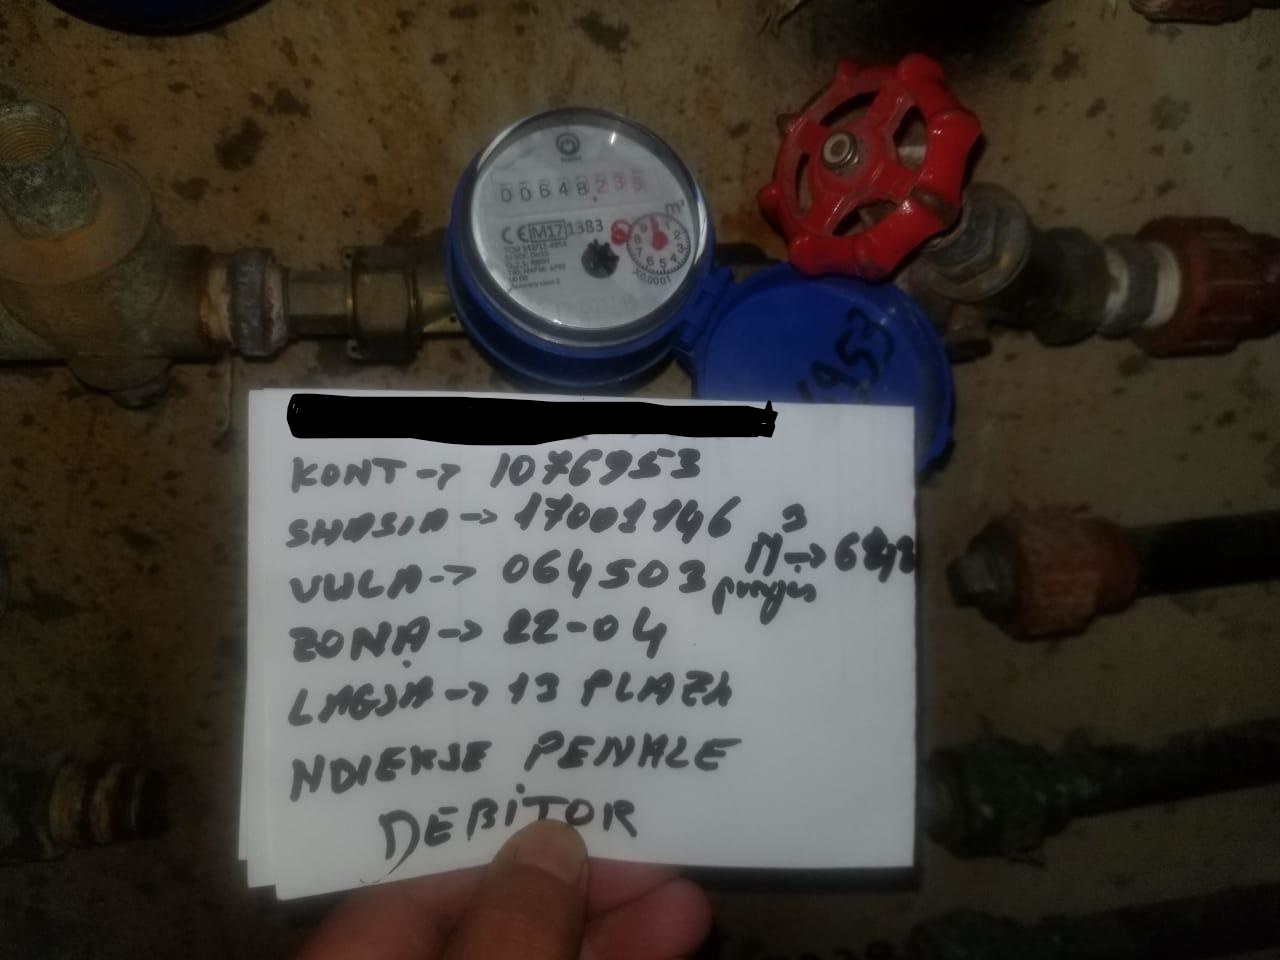 00648,235
m³
CE M17 1383
X0.0001
1953
KONT → 1076953
SHASIA → 17001146
VULA → 064503
M³ → 648
ZONA → 22-04
LAGJA → 13 PLAZH
NDIEKJE PENALE
DEBITOR